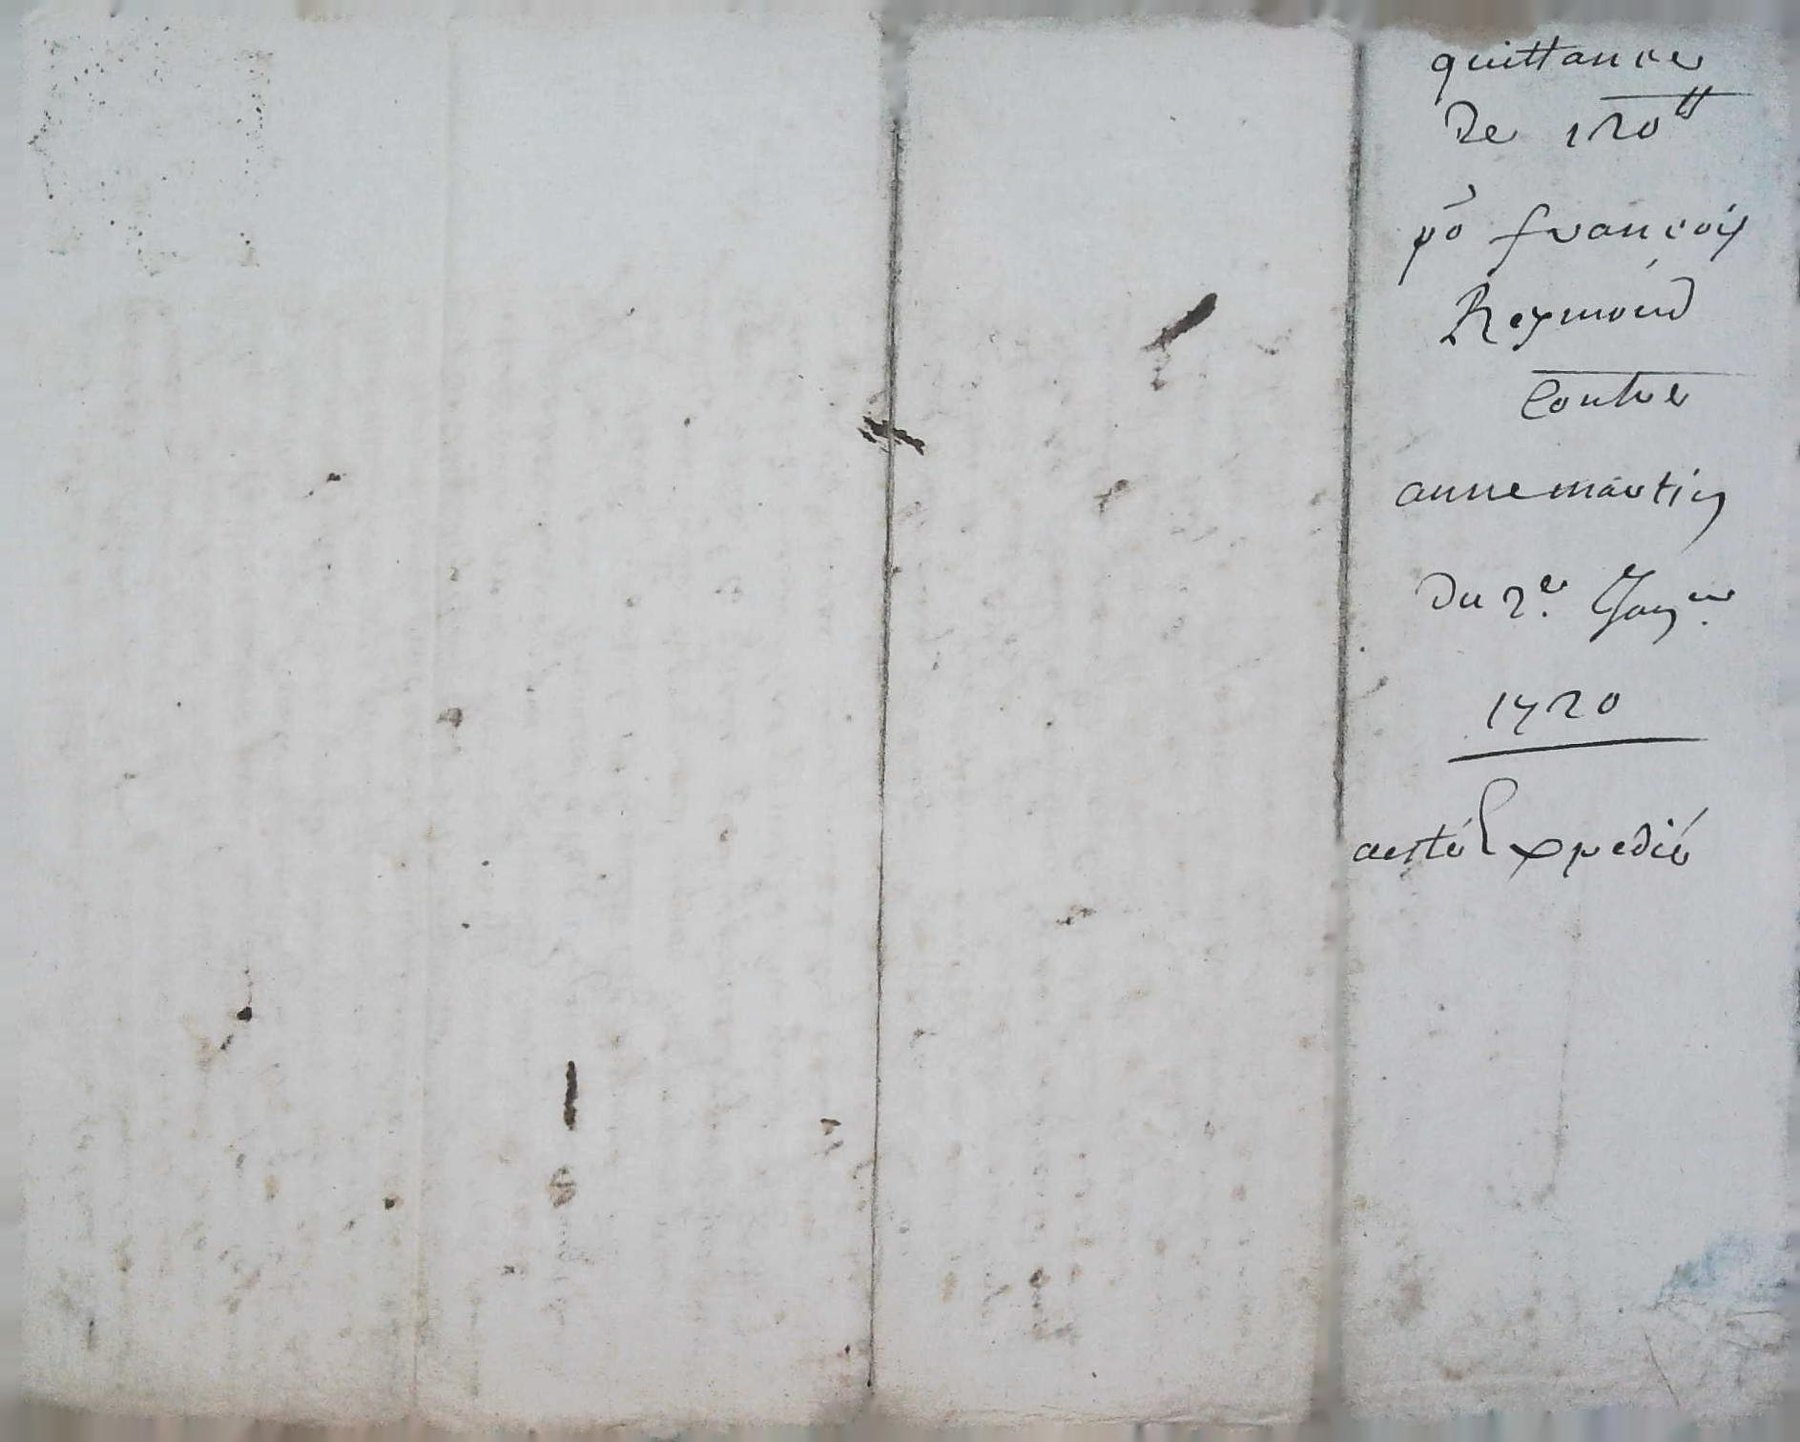 quittance
De 120tt
po françois
Reymond
Contre
anne martin
Du 2e. Janer.
1720
aesté Expedié